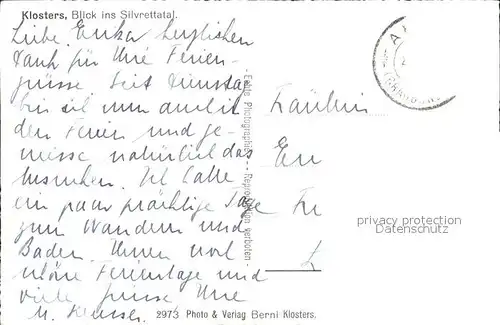 Klosters, Blick ins Silvrettatal.
Liebe Erika herzlichen
Dank für Ihre Ferien-
grüsse. Seit Dienstag
bin ich nun auch in
den Ferien und ge-
niesse natürlich das
Ich habe
ein paar prächtige Tage
zum Wandern und
Baden. Ihnen noch
schöne Ferientage und
viele Grüsse Ihre
M.
Fräulein
Er
Fr
L
- Echte Photographie - Reproduktion verboten -
privacy protection
Datenschutz
2973 Photo & Verlag Berni Klosters.